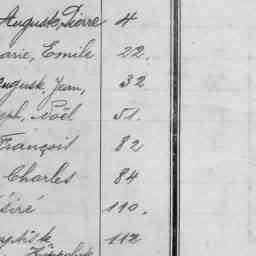 Auguste, Pierre 4
arie, Emile 22.
uguste, Jean, 32
eph, Noël 51.
François 82
Charles 84
siré 110.
aptiste 112
Hippolyte